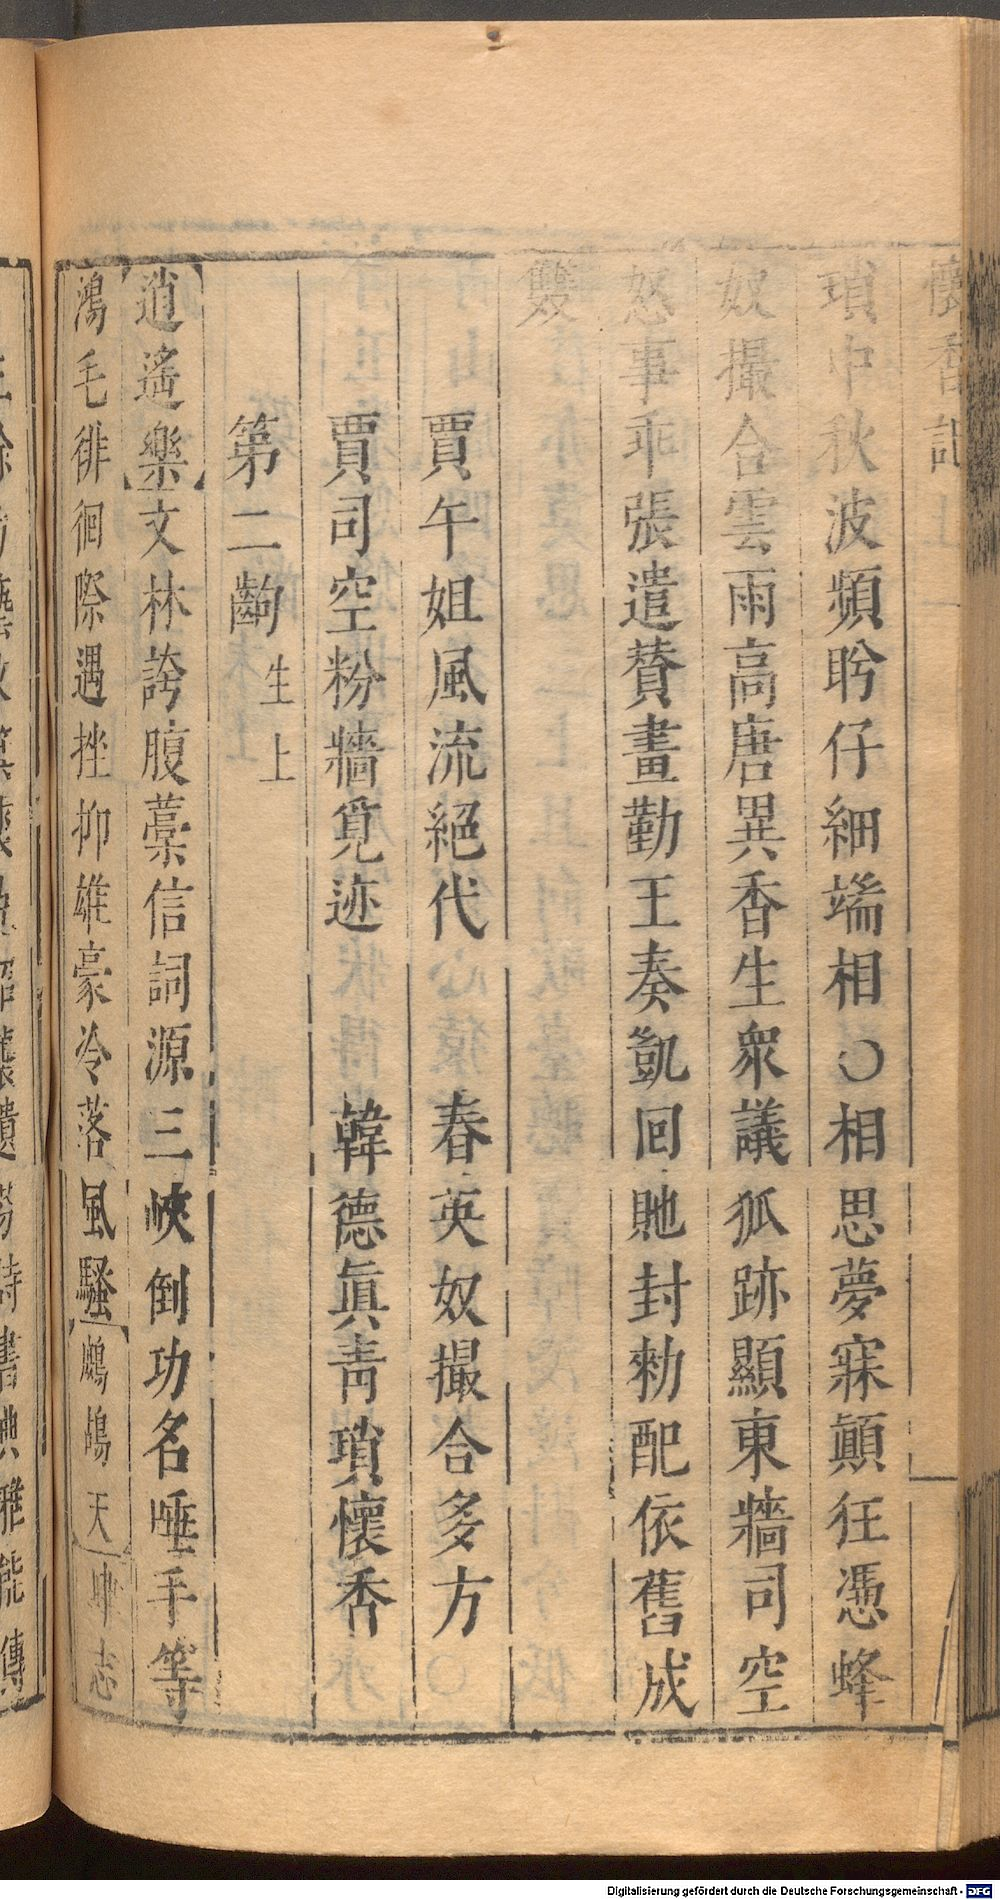 懷香記 上 一
瑣中秋波頻盻仔細端相○相思夢寐顚狂憑蜂
奴撮合雲雨高唐異香生衆議狐跡顯東牆司空
怒事乖張遣賛畫勤王奏凱回貤封勑配依舊成
雙
賈午姐風流絕代 春英奴撮合多方
賈司空粉牆覓迹 韓德眞靑瑣懷香
第二齣 生上
【逍遙樂】文林誇腹藁信詞源三峽倒功名唾手等
鴻毛徘徊際遇挫抑雄豪冷落風騷【鷓鴣天】坤志
Digitalisierung gefördert durch die Deutsche Forschungsgemeinschaft - DFG